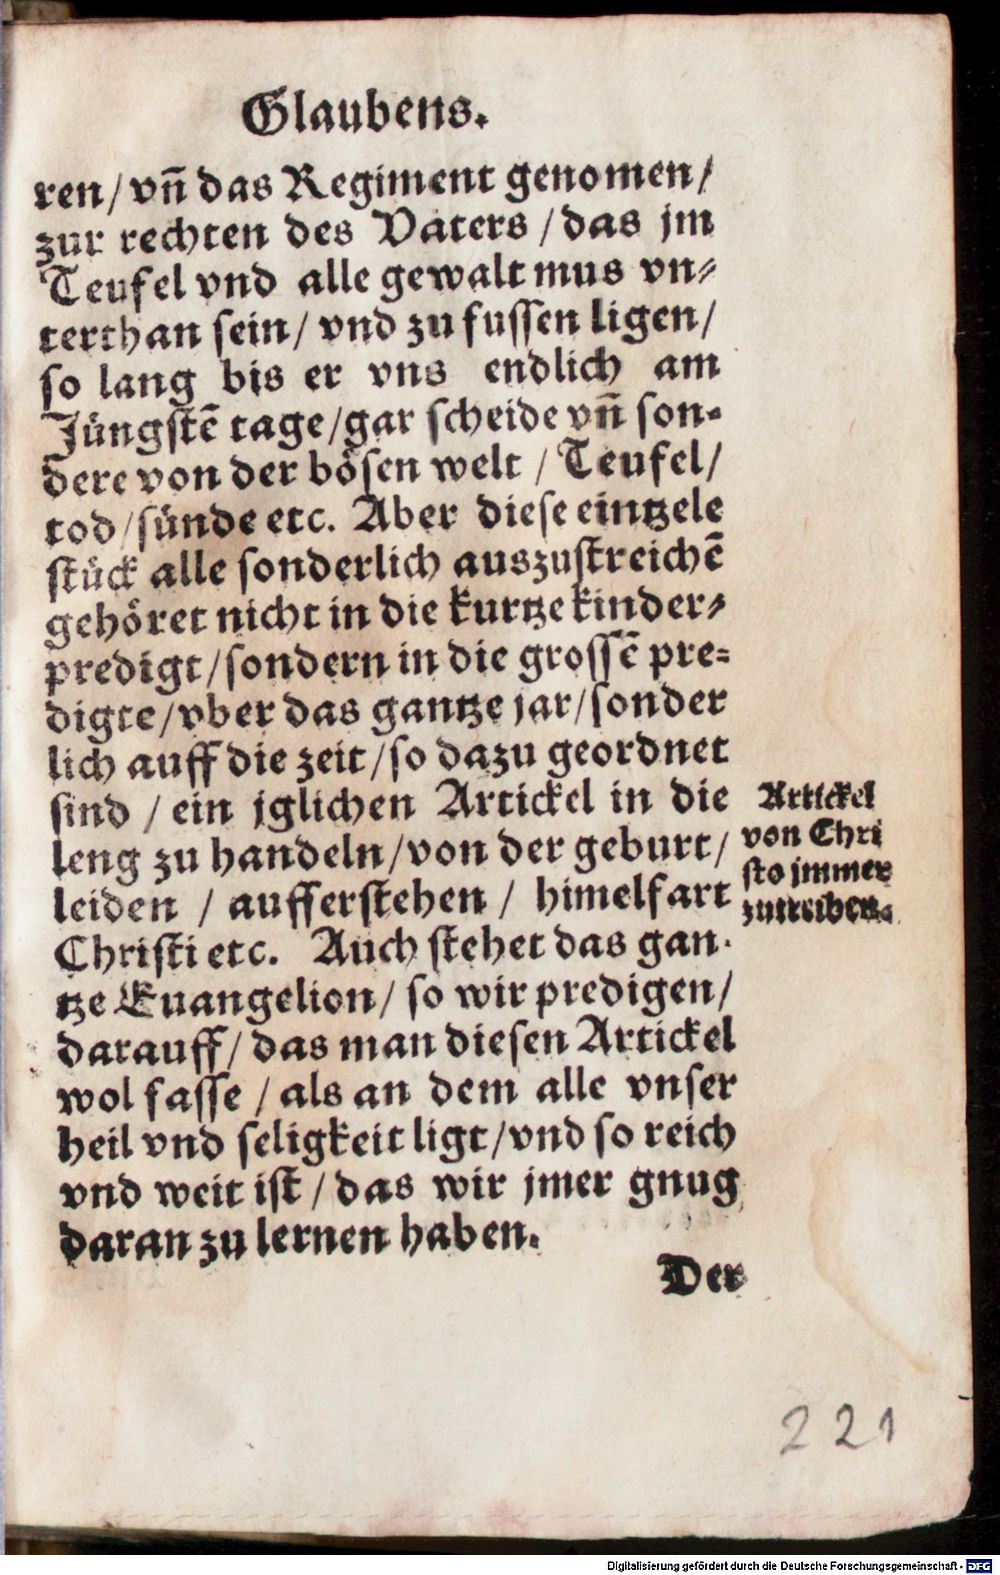 Glaubens.
ren/ vñ das Regiment genomen/
zur rechten des Vaters / das jm
Teufel vnd alle gewalt mus vn-
terthan sein/ vnd zu fussen ligen/
so lang bis er vns endlich am
Jüngstē tage/gar scheide vñ son-
dere von der bösen welt / Teufel/
tod/sünde etc. Aber diese eintzele
stück alle sonderlich auszustreichē
gehöret nicht in die kurtze kinder-
predigt/sondern in die grossē pre-
digte/vber das gantze jar/sonder
lich auff die zeit/so dazu geordnet
sind / ein jglichen Artickel in die
leng zu handeln/von der geburt/
leiden / aufferstehen / himelfart
Christi etc. Auch stehet das gan-
tze Euangelion/ so wir predigen/
darauff/ das man diesen Artickel
wol fasse / als an dem alle vnser
heil vnd seligkeit ligt/vnd so reich
vnd weit ist / das wir jmer gnug
daran zu lernen haben.
Artickel
von Chri
sto jmmer
zutreiben.
Der
221
Digitalisierung gefördert durch die Deutsche Forschungsgemeinschaft - DFG